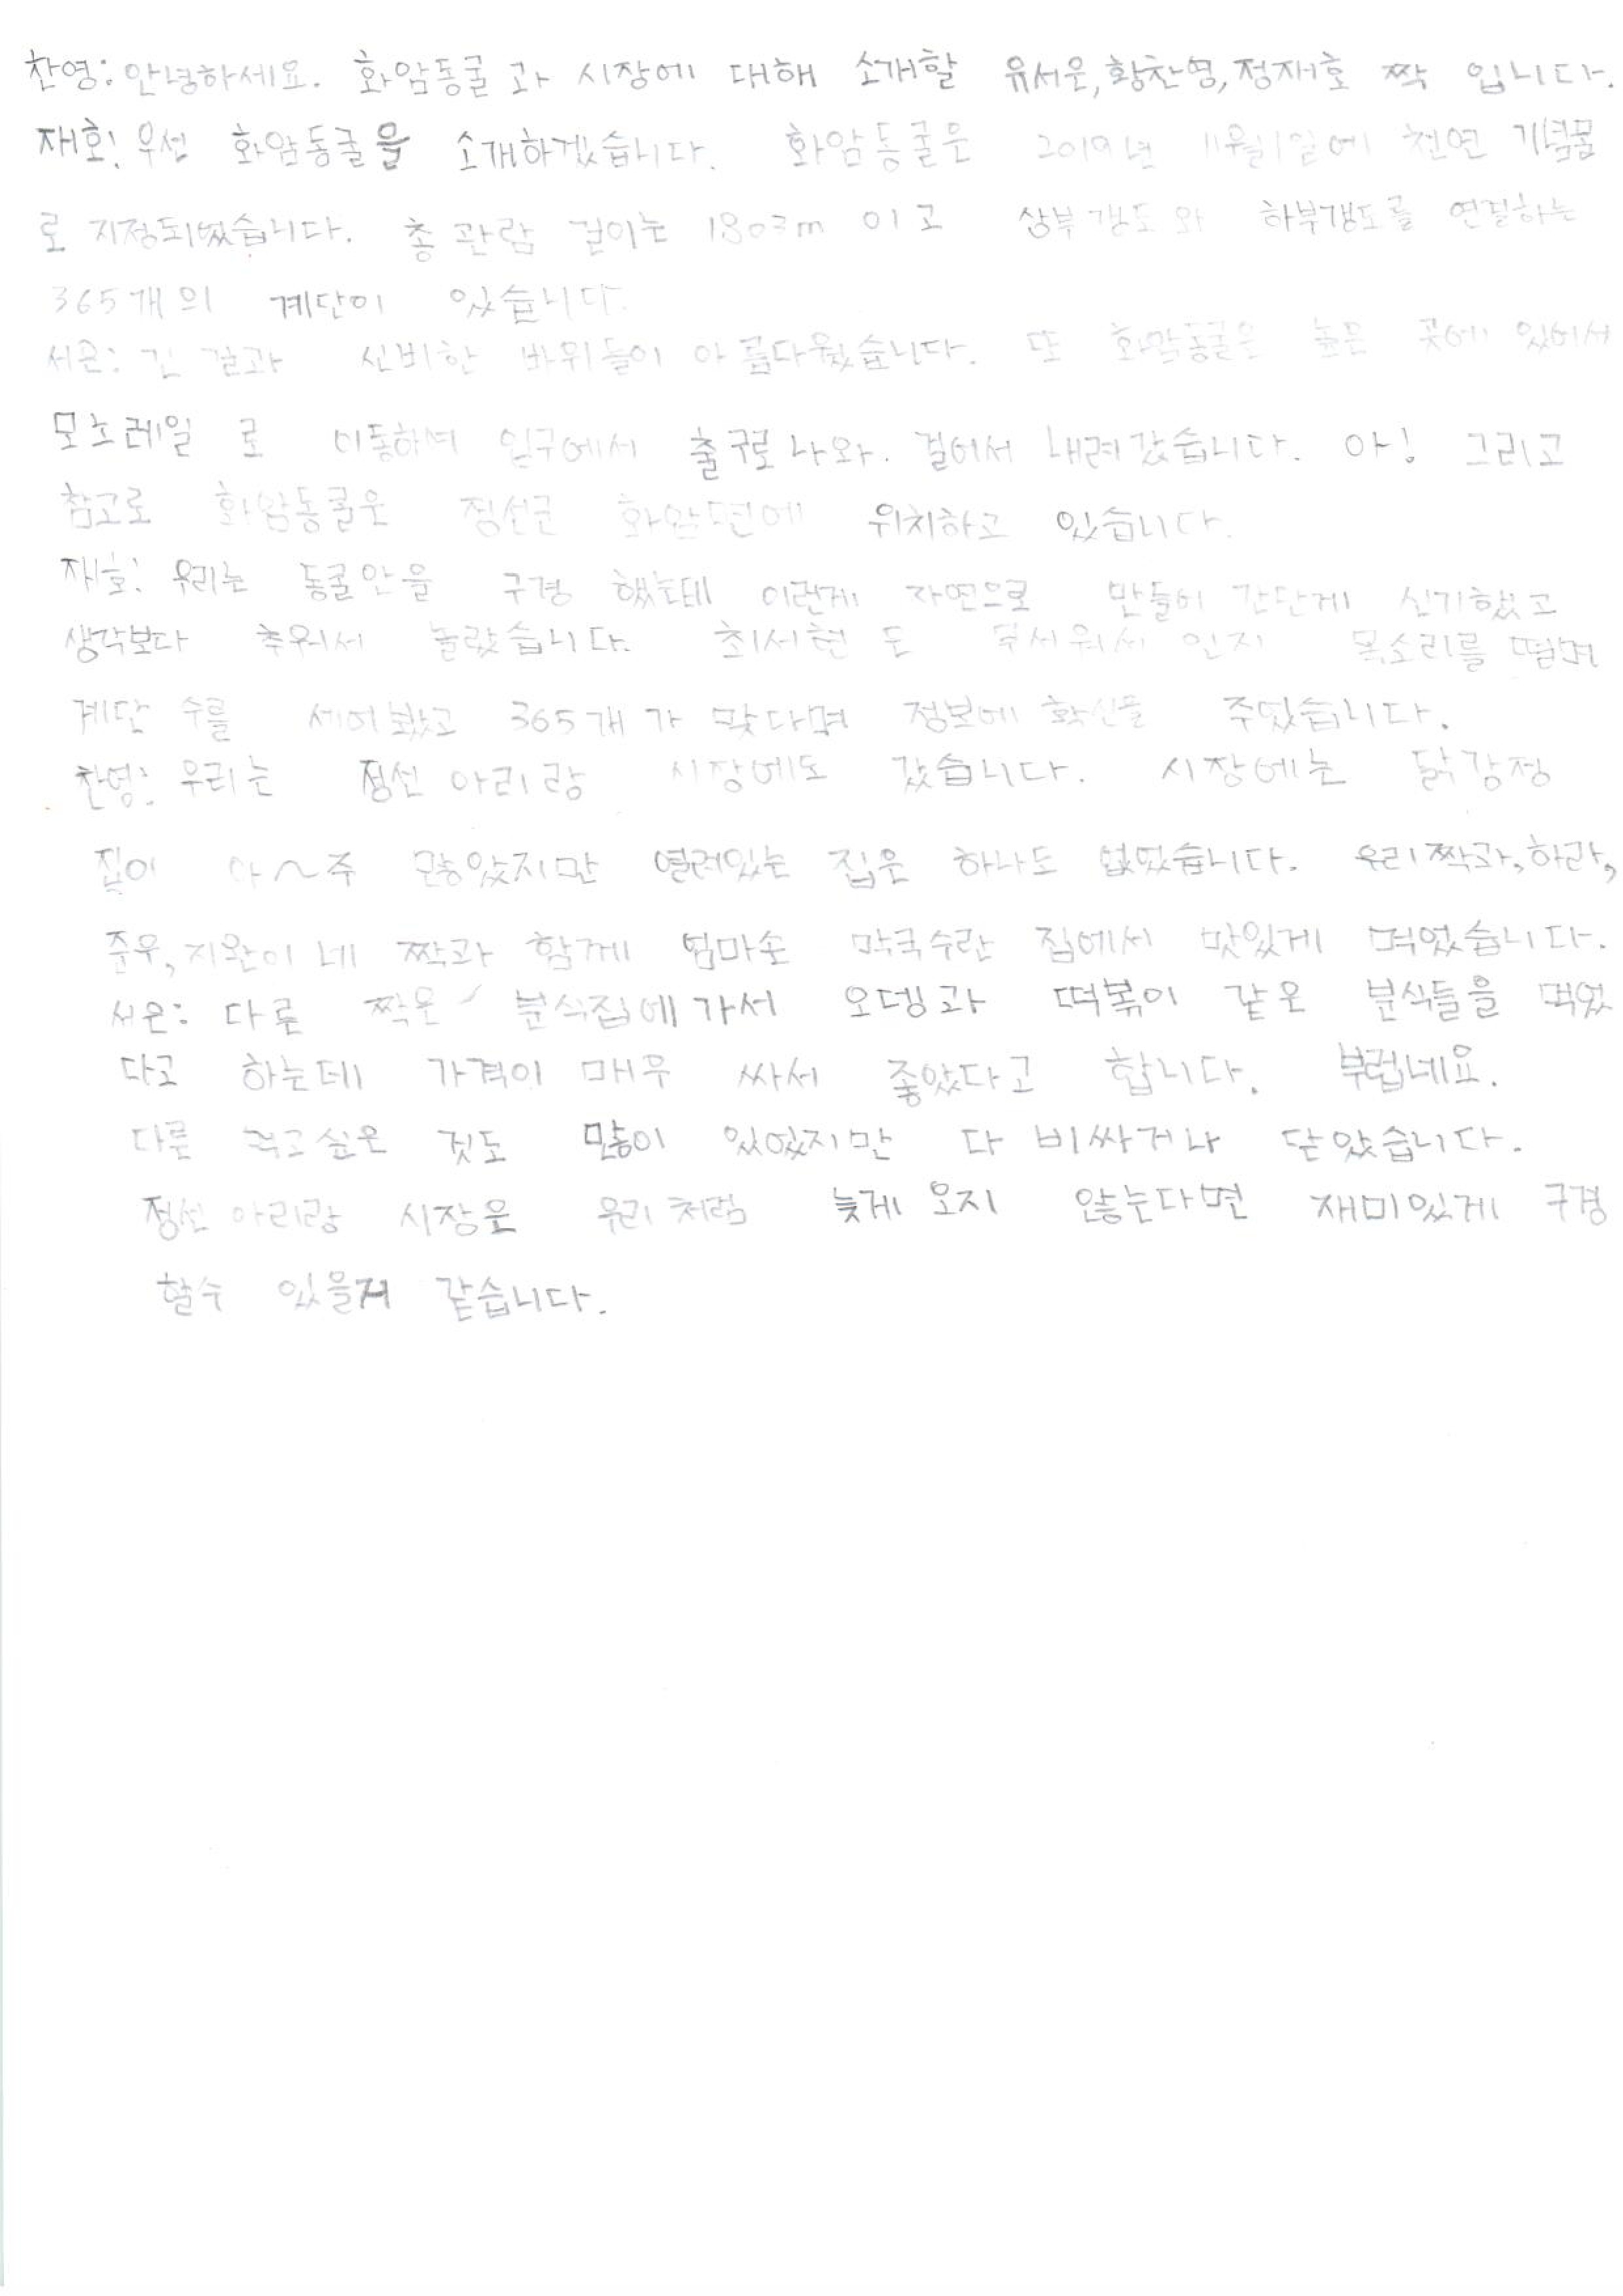 찬영: 안녕하세요. 화암동굴과 시장에 대해 소개할 유서운, 황찬영, 정재호 짝 입니다.
재호: 우선 화암동굴을 소개하겠습니다. 화암동굴은 2019년 11월 1일에 천연 기념물
로 지정되었습니다. 총 관람 길이는 1803m 이고 상부갱도와 하부갱도를 연결하는
365개의 계단이 있습니다.
서은: 긴 길과 신비한 바위들이 아름다웠습니다. 또 화암동굴은 높은 곳에 있어서
모노레일 로 이동하며 입구에서 출구로 나와. 걸어서 내려갔습니다. 아! 그리고
참고로 화암동굴은 정선군 화암면에 위치하고 있습니다.
재호: 우리는 동굴안을 구경 했는데 이런게 자연으로 만들어 간단게 신기했고
생각보다 추워서 놀랐습니다. 최세현 도 인지 목소리를 떨며
계단 수를 세어봤고 365개가 맞다며 정보에 확신을 주었습니다.
찬영: 우리는 정선 아리랑 시장에도 갔습니다. 시장에는 닭강정
집이 아~주 많았지만 열려있는 집은 하나도 없었습니다. 우리 짝과, 하람,
준우, 지완이 네 짝과 함께 엄마손 막국수란 집에서 맛있게 먹었습니다.
서은: 다른 짝은 분식집에 가서 오뎅과 떡볶이 같은 분식들을 먹었
다고 하는데 가격이 매우 싸서 좋았다고 합니다. 부럽네요.
다른 먹고싶은 것도 많이 있었지만 다 비싸거나 닫았습니다.
정선 아리랑 시장은 우리 처럼 늦게 오지 않는다면 재미있게 구경
할수 있을거 같습니다.